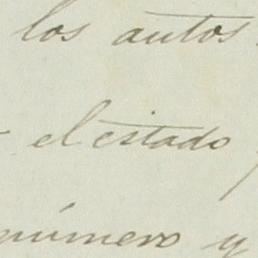 los autos
el estado
número y